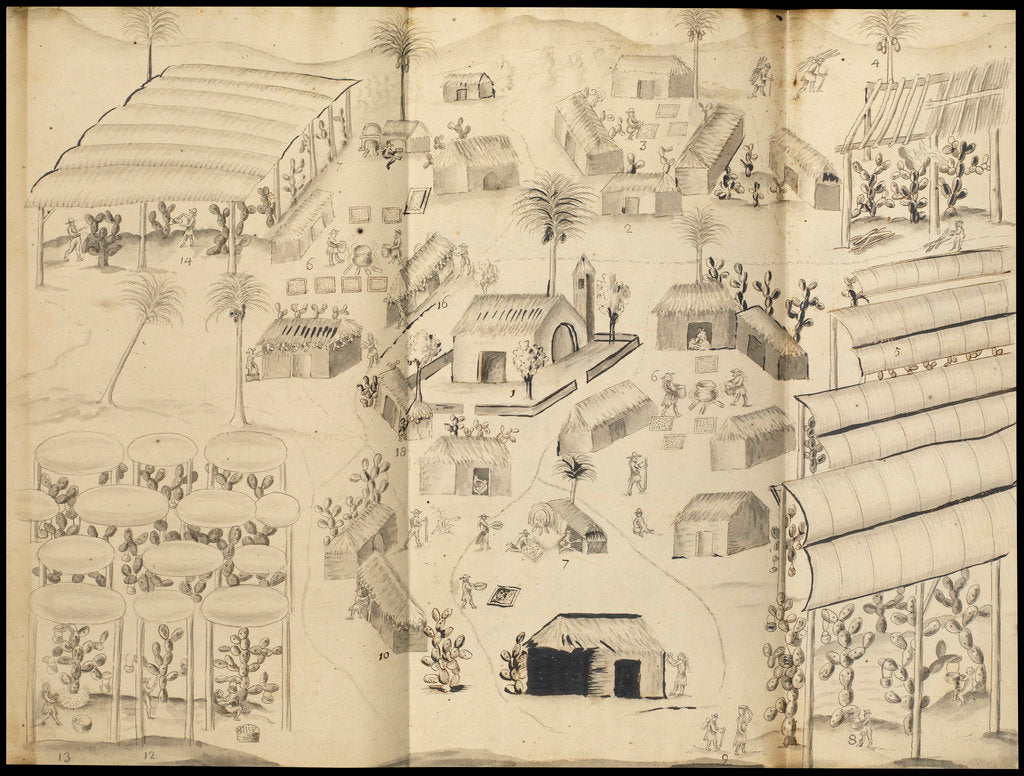 4
3
2
14
6
16
5
1
6
18
7
10
8
9
13
12